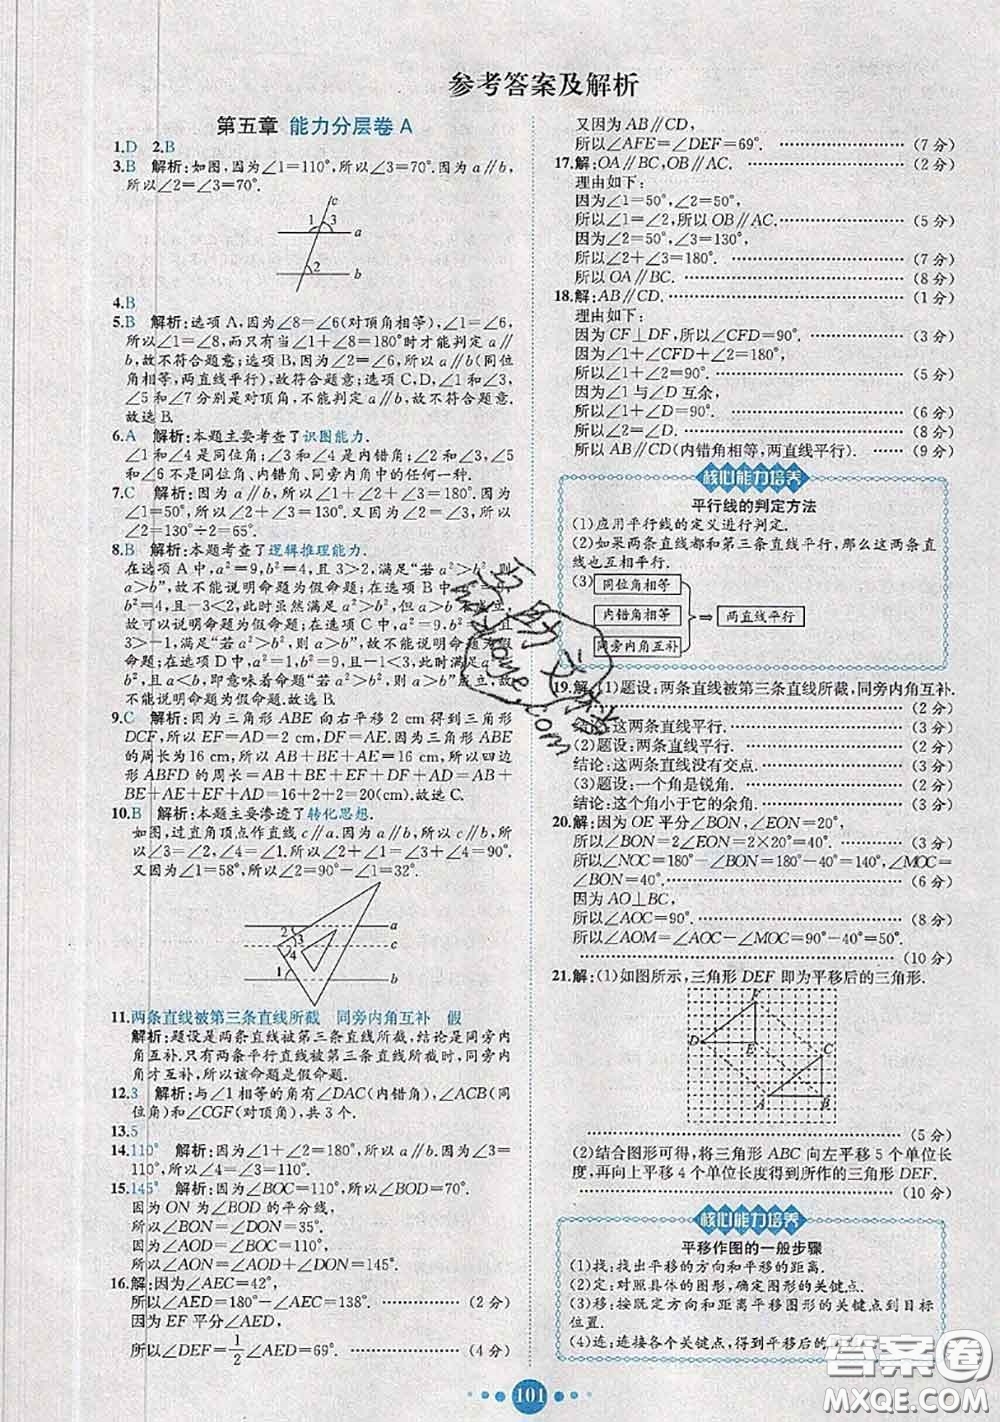 参考答案及解析
第五章 能力分层卷 A
1.D 2.B
3.B 解析:如图,因为∠1=110°,所以∠3=70°.因为a∥b,
所以∠2=∠3=70°.
c
1 3
a
2
b
4.B
5.B 解析:选项 A,因为∠8=∠6(对顶角相等),∠1=∠5,
所以∠1=∠8,而只有当∠1+∠8=180°时才能判定a∥
b,故不符合题意;选项 B,因为∠2=∠6,所以a∥b(同位
角相等,两直线平行),故符合题意;选项 C,D,∠1和∠3,
∠5和∠7分别是对顶角,不能判定a∥b,故不符合题意.
故选 B.
6.A 解析:本题主要考查了识图能力.
∠1和∠4是同位角;∠3和∠4是内错角;∠2和∠3,∠5
和∠6不是同位角、内错角、同旁内角中的任何一种.
7.C 解析:因为a∥b,所以∠1+∠2+∠3=180°.因为
∠1=50°,所以∠2+∠3=130°.又因为∠2=∠3,所以
∠2=130°÷2=65°.
8.B 解析:本题考查了逻辑推理能力.
在选项 A中,a²=9,b²=4,且3>2,满足"若a²>b²,则
a>b",故不能说明命题为假命题;在选项 B中,a²=9,
b²=4,且-3<2,此时虽然满足a²>b²,但a>b不成立,
故可以说明命题为假命题;在选项 C中,a²=9,b²=1,且
3>-1,满足"若a²>b²,则a>b",故不能说明命题为假
命题;在选项 D中,a²=1,b²=9,且-1<3,此时a²<
b²,即意味着命题"若a²>b²,则a>b"成立,
故不能说明命题为假命题.故选 B.
9.C 解析:因为三角形 ABE 向右平移2 cm得到三角形
DCF,所以EF=AD=2 cm,AE=DF.因为三角形ABE
的周长为16 cm,所以AB+BE+AE=16 cm,所以四边
形 ABFD 的周长=AB+BE+EF+DF+AD=AB+
BE+AE+EF+AD=16+2+2=20(cm).故选 C.
10.B 解析:本题主要渗透了转化思想.
如图,过直角顶点作直线c∥a.因为a∥b,所以c∥b,所
以∠2=∠3,∠4=∠1.所以∠2+∠1=∠3+∠4=90°.
又因为∠1=58°,所以∠2=90°-∠1=32°.
2
a
3
c
4
1
b
11.两条直线被第三条直线所截 同旁内角互补 假
解析:题设是两条直线被第三条直线所截,结论是同旁内
角互补.只有两条平行直线被第三条直线所截时,同旁内
角才互补,所以该命题是假命题.
12.3 解析:与∠1相等的角有∠DAC(内错角),∠ACB(同
位角)和∠CGF(对顶角),共3个.
13.5
14.110° 解析:因为∠1+∠2=180°,所以a∥b.因为∠3=
110°,所以∠4=∠3=110°.
15.145° 解析:因为∠BOC=110°,所以∠BOD=70°.
因为 ON 为∠BOD 的平分线,
所以∠BON=∠DON=35°.
因为∠AOD=∠BOC=110°,
所以∠AON=∠AOD+∠DON=145°.
16.解:因为∠AEC=42°,
所以∠AED=180°-∠AEC=138°. (2分)
因为EF平分∠AED,
所以∠DEF=1/2∠AED=69°. (4分)
又因为AB∥CD,
所以∠AFE=∠DEF=69°. (7分)
17.解:OA∥BC,OB∥AC. (2分)
理由如下:
因为∠1=50°,∠2=50°,
所以∠1=∠2,所以OB∥AC. (5分)
因为∠2=50°,∠3=130°,
所以∠2+∠3=180°. (7分)
所以OA∥BC. (8分)
18.解:AB∥CD. (1分)
理由如下:
因为CF⊥DF,所以∠CFD=90°. (3分)
因为∠1+∠CFD+∠2=180°,
所以∠1+∠2=90°. (5分)
因为∠1与∠D互余,
所以∠1+∠D=90°. (6分)
所以∠2=∠D. (8分)
所以AB∥CD(内错角相等,两直线平行). (9分)
核心能力培养
平行线的判定方法
(1)应用平行线的定义进行判定.
(2)如果两条直线都和第三条直线平行,那么这两条直
线也互相平行.
(3) 同位角相等
内错角相等 两直线平行
同旁内角互补
19.解:(1)题设:两条直线被第三条直线所截,同旁内角互补.
(2分)
这两条直线平行. (3分)
(2)题设:两条直线平行. (5分)
结论:这两条直线没有交点. (6分)
(3)题设:一个角是锐角. (8分)
结论:这个角小于它的余角. (9分)
20.解:因为OE平分∠BON,∠EON=20°,
所以∠BON=2∠EON=2×20°=40°. (3分)
所以∠NOC=180°-∠BON=180°-40°=140°,∠MOC=
∠BON=40°. (6分)
因为AO⊥BC,
所以∠AOC=90°. (8分)
所以∠AOM=∠AOC-∠MOC=90°-40°=50°.
(10分)
21.解:(1)如图所示,三角形 DEF 即为平移后的三角形.
F
D E
C
A B
(5分)
(2)结合图形可得,将三角形 ABC 向左平移5个单位长
度,再向上平移4个单位长度得到所作的三角形 DEF.
(10分)
核心能力培养
平移作图的一般步骤
(1)找:找出平移的方向和平移的距离.
(2)定:对照具体的图形,确定图形的关键点.
(3)移:按既定方向和距离平移图形的关键点到目标
位置.
(4)连:连接各个关键点,得到平移后的
101
答案圈
MXQE.COM